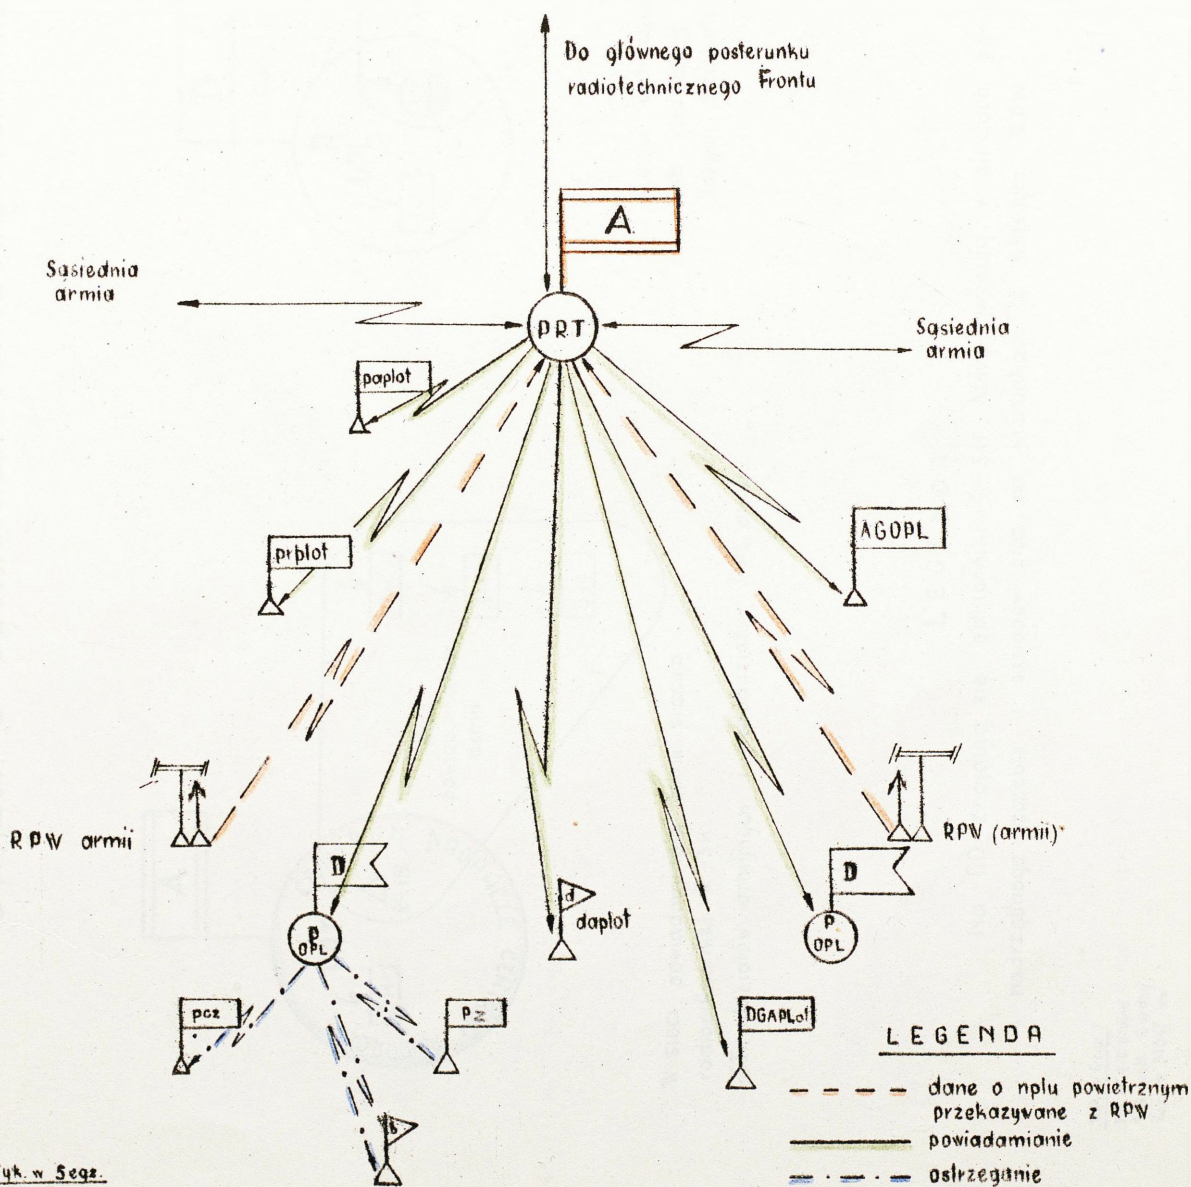 Do głównego posterunku
radiotechnicznego Frontu
A
Sąsiednia
armia
PRT
Sąsiednia
armia
paplot
AGOPL
prplot
RPW armii
RPW (armii)
D
D
d
daplot
P
OPL
P
OPL
pcz
pz
DGAPLot
b
LEGENDA
dane o nplu powietrznym
przekazywane z RPW
powiadamianie
ostrzeganie
w 5egz.